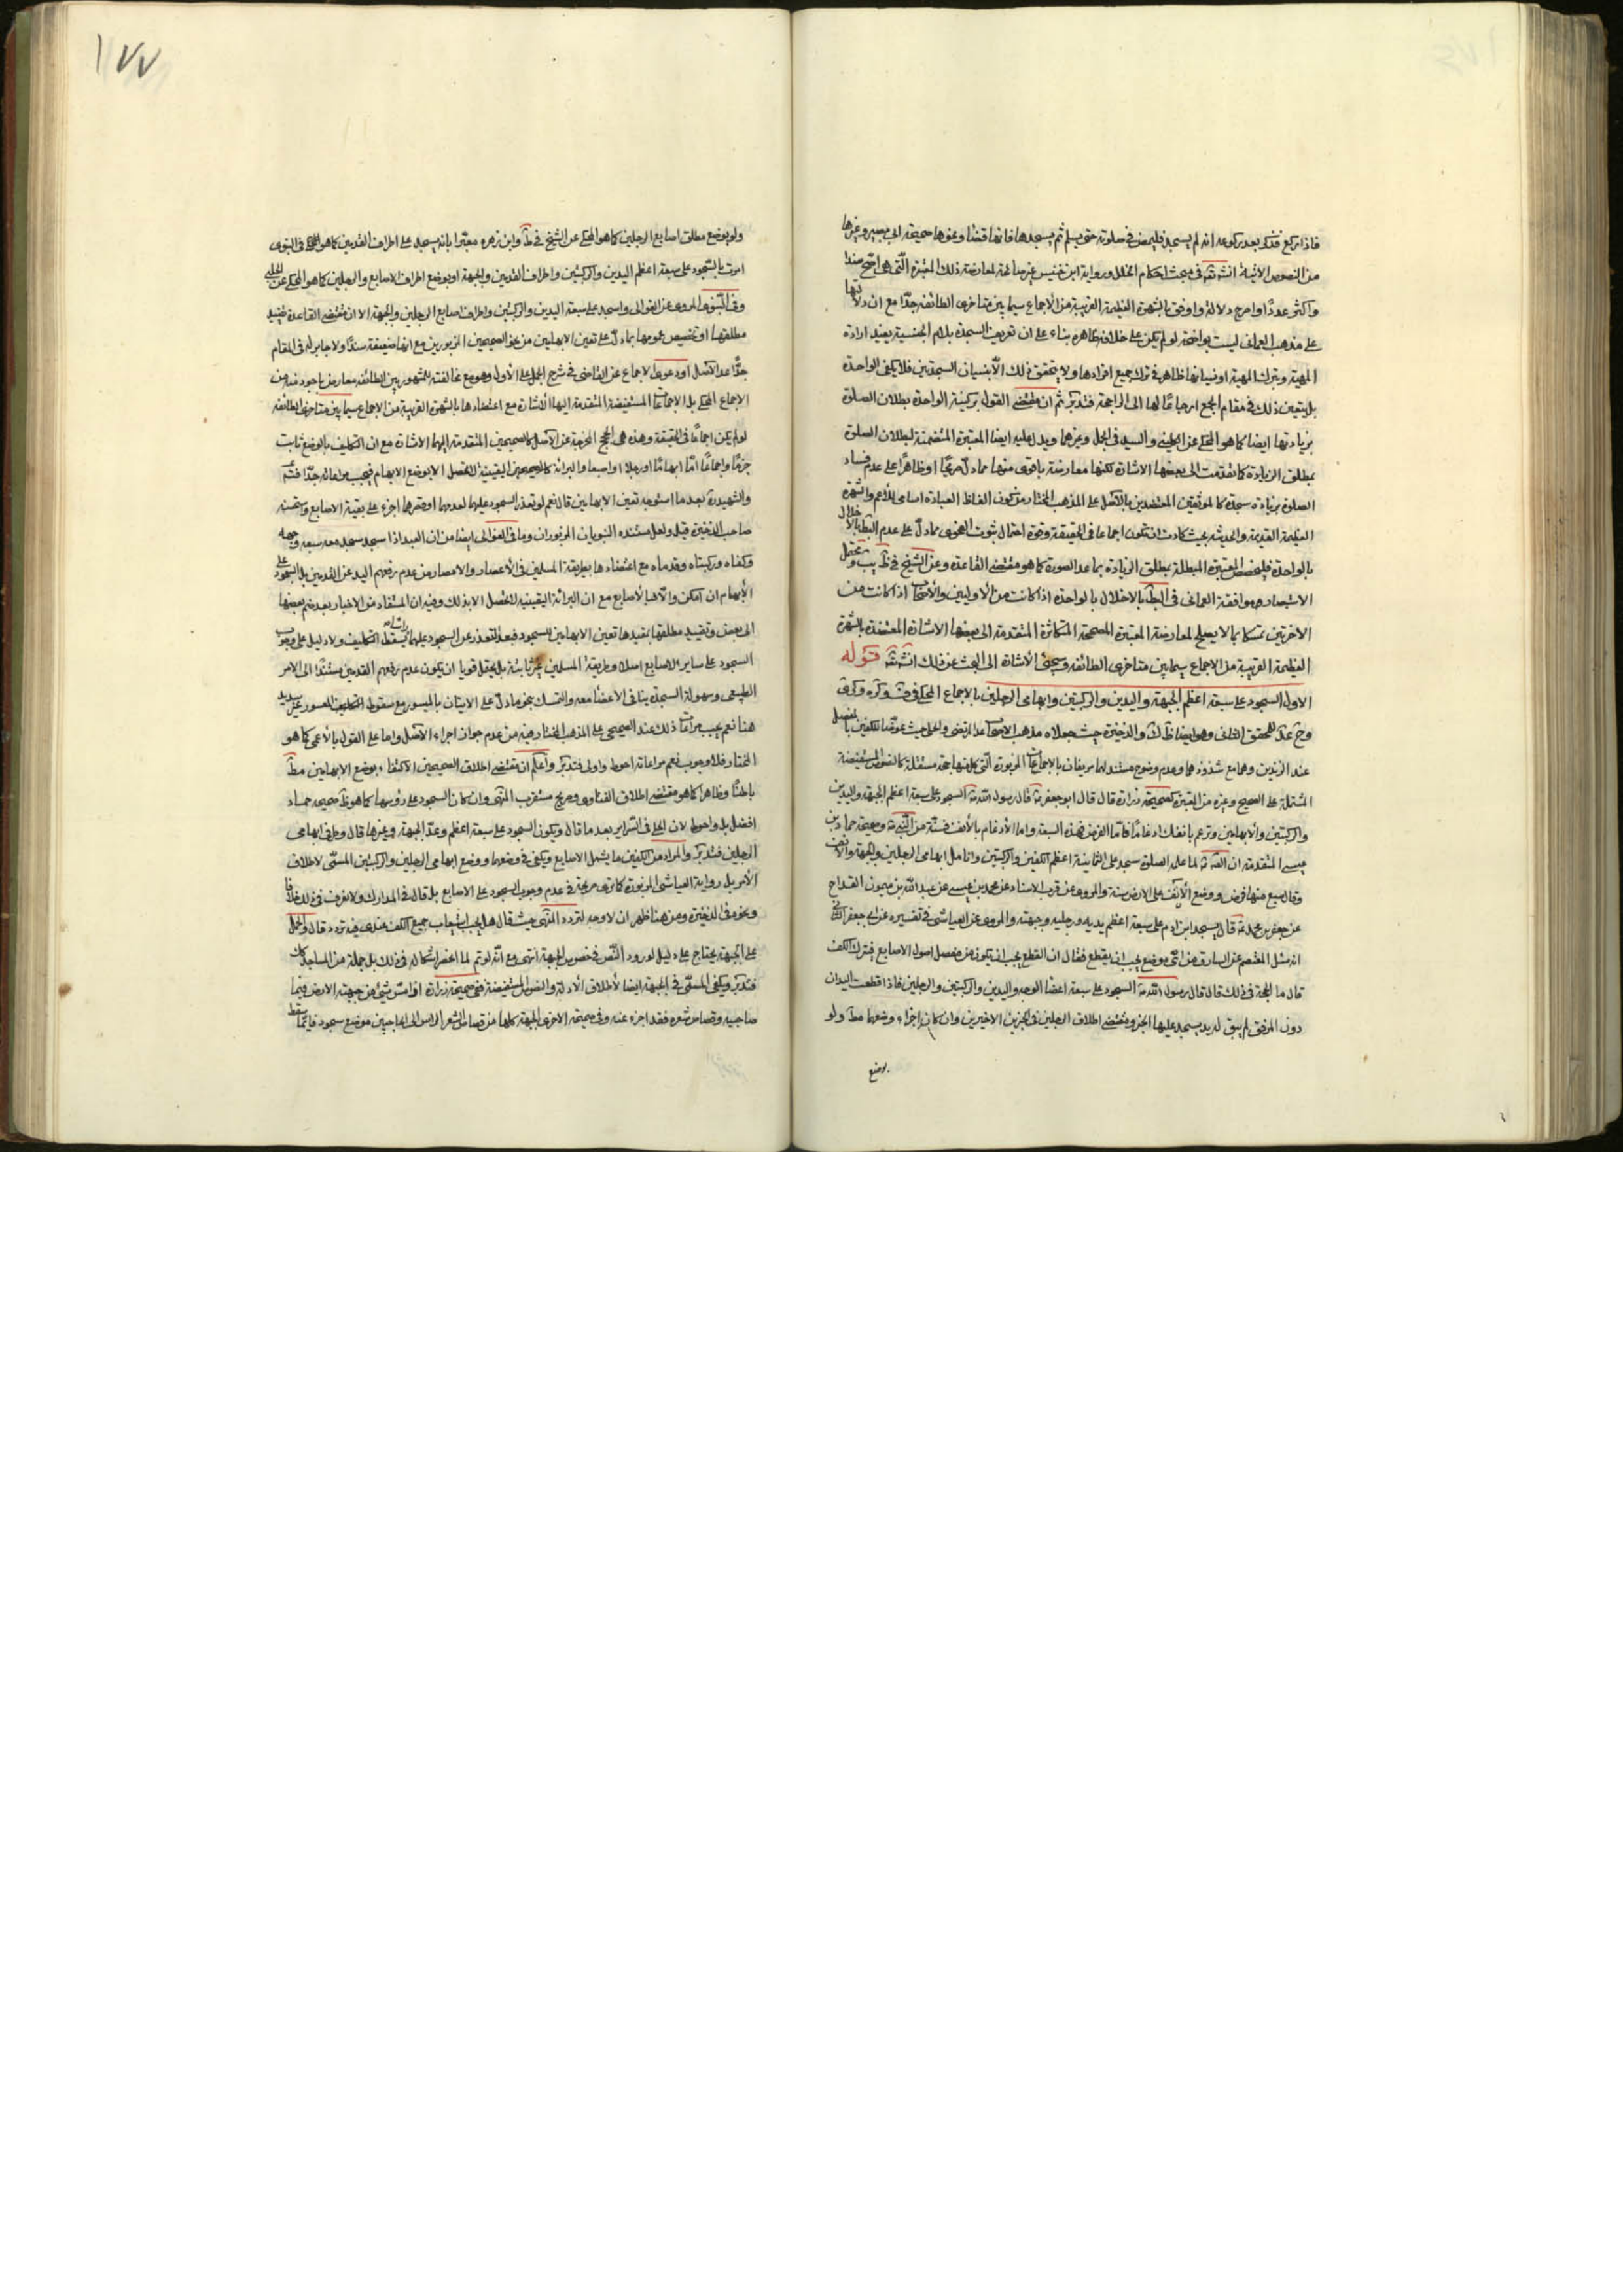 فاذا ركع فذكر بعد ركوعه انه لم يسجد فليمض في صلوته حتى يسلم ثم يسجدها فانها قضاء ونحوها صحيحة ابي بصير وغيرها
من النصوص الاتية انشتعه في مبحث احكام الخلل ورواية ابن خنيس غير صالحة لمعارضة ذلك المعتبرة التي هي اصح سندا
واكثر عددا وارجح دلالة واوفق بالشهرة العظيمة القريبة من الاجماع سيما بين متاخرى الطائفة جدا مع ان دلالتها
على مذهب العماني ليست بواضحة لو لم يكن على خلافه ظاهره بناء على ان تعريف السجدة بلام الجنسية يفيد ارادة
المهية وترك المهية او نسيانها ظاهر في ترك جميع افرادها ولا يتحقق ذلك الا بنسيان السجدتين فلا يكفى الواحدة
بل يتعين ذلك في مقام الجمع ارجاعا لها الى الراجحة فتدبر ثم ان مقتضى القول بركنية الواحدة بطلان الصلوة
بزيادتها ايضا كما هو المحكى عن الكليني والسيد في الجمل وغيرهما ويدل عليه ايضا المعتبرة المتضمنة لبطلان الصلوة
بمطلق الزيادة كما تقدمت الى بعضها الاشارة لكنها معارضة باقوى منها مما دل صريحا او ظاهرا على عدم فساد
الصلوة بزيادة سجدة كالموثقين المعتضدين بالاصل على المذهب المختار من كون الفاظ العبادة اسامى للاعم والشهرة
العظيمة القديمة والحديثة بحيث كادت ان تكون اجماعا في الحقيقة وقوة احتمال ثبوت الفحوى مما دل على عدم البطلان بالاخلال
بالواحدة فليخصص المعتبرة المبطلة بمطلق الزيادة بما عدا الصورة كما هو مقتضى القاعدة وعن الشيخ في
الاستبصار موافقة العماني في البطلان بالاخلال بالواحدة اذا كانت من الاوليين والاصحاب اذا كانت من
الاخرتين تمسكا بما لا يصلح لمعارضة المعتبرة الصحيحة المتكاثرة المتقدمة الى بعضها الاشارة المعتضدة بالشهرة
العظيمة القريبة من الاجماع سيما بين متاخرى الطائفة وسيجئ الاشارة الى البحث عن ذلك قوله
الاول السجود على سبعة اعظم الجبهة واليدين والركبتين وابهامى الرجلين بالاجماع المحكى في
للمحقق الثاني وهو ايضا والذخيرة حيث جعلاه مذهب الاصحاب عدا المرتضى والحلى حيث عوضا الكفين بالمفصل
عند الزندين وهما مع شذوذهما وعدم وضوح مستند لهما مزيفان بالاجماعات المزبورة التي كل منها حجة مستقلة كالنصوص المستفيضة
المشتملة على الصحيح وغيره من المعتبرة كصحيحة زرارة قال قال ابو جعفر قال رسول الله السجود على سبعة اعظم الجبهة واليدين
والركبتين والابهامين وترغم بانفك ارغاما فاما الفرض فهذه السبعة واما الارغام بالانف فسنة من النبي وصحيحة حماد بن
عيسى المتقدمة ان لما علمه الصلوة سجد على الثمانية اعظم الكفين والركبتين وانامل ابهامى الرجلين والجبهة والانف
وقال سبع منها فرض ووضع الانف على الارض سنة والمروى عن قرب الاسناد عن محمد بن عيسى عن عبد الله بن ميمون القداح
عن جعفر بن محمد قال يسجد ابن ادم على سبعة اعظم يديه ورجليه وجبهته والمروى عن العياشى في تفسيره عن ابي جعفر الثاني
انه سئل المعتصم عن السارق من اى موضع يجب ان يقطع فقال ان القطع يجب ان يكون من مفصل اصول الاصابع فيترك الكف
قال ما الحجة في ذلك قال قال رسول الله السجود على سبعة اعضا الوجه واليدين والركبتين والرجلين فاذا قطعت اليدان
دون المرفق لم يبق له يد يسجد عليها الخبر ومقتضى اطلاق الرجلين في الخبرين الاخيرين وان كان اجزاء وضعهما ولو
بوضع
١٧٧
ولو بوضع مطلق اصابع الرجلين كما هو المحكى عن الشيخ في ط وابن زهره معبرا بانه يسجد على اطراف القدمين كما هو في النبوى
امرت بالسجود على سبعة اعظم اليدين والركبتين واطراف القدمين والجبهة او بوضع اطراف الاصابع والرجلين كما هو المحكى عن الحلبي
وفي النبوى المروى عن الغوالى واسجد على سبعة اليدين والركبتين واطراف اصابع الرجلين والجبهة الا ان مقتضى القاعدة تقييد
مطلقها او تخصيص عمومها بما دل على تعين الابهامين من نحو الصحيحين المزبورين مع انها ضعيفة سندا ولا جابر له في المقام
جدا عدا الاصل او دعوى الاجماع عن القاضى في شرح الجمل على الاول وهو مع مخالفته للمشهور بين الطائفة معارض باجود منه من
الاجماع المحكى بل الاجماعات المستفيضة المتقدمة اليها الاشارة مع اعتضادها بالشهرة القريبة من الاجماع سيما بين متاخرى الطائفة
لو لم يكن اجماعا في الحقيقة وهذه هي الحجج المخرجة عن الاصل كالصحيحين المتقدمة اليهما الاشارة مع ان التكليف بالوضع ثابت
جزما واجماعا اما ابهاما او رجلا او اصبعا والبرائة اليقينية لا تحصل الا بوضع الابهام فيجب مراعاته جدا
والشهيد بعد ما استوجه تعين الابهامين قال نعم لو تعذر السجود عليهما لعدمهما او قصرهما اجزء على بقية الاصابع واستحسنه
صاحب الذخيرة قيل ولعل مستنده النبويان المزبوران وما في الغوالى ايضا من ان العبد اذا سجد سجد معه سبعة وجهه
وكفاه وركبتاه وقدماه مع اعتضادها بطريقة المسلمين في الاعصار والامصار من عدم رفعهم اليد عن القدمين بل السجود على
الابهام ان امكن والا فبالاصابع مع ان البرائة اليقينية لا تحصل الا بذلك وفيه ان المستفاد من الاخبار بعد ضم بعضها
الى بعض وتقييد مطلقها بمقيدها تعين الابهامين للسجود فبعد التعذر عن السجود عليهما يسقط التكليف ولا دليل على وجوب
السجود على ساير الاصابع اصلا وطريقة المسلمين غير ثابتة بل يحتمل قويا ان يكون عدم رفعهم القدمين مستندا الى الامر
الطبيعى وسهولة السجدة بباقى الاعضاء معه والتمسك بنحو ما دل على الاتيان بالميسور مع سقوط التكليف المعسور غير سديد
هنا نعم يجب مراعات ذلك عند الصحيحى على المذهب المختار فيه من عدم جواز اجراء الاصل واما على القول بالاعمى كما هو
المختار فلا وجوب نعم مراعاته احوط واولى فتدبر واعلم ان مقتضى اطلاق الصحيحين الاكتفاء بوضع الابهامين
باطنا وظاهرا كما هو مقتضى اطلاق الفتاوى وصريح مستقرب المنتهى وان كان السجود على رؤسها كما هو صحيحة حماد
افضل بل واحوط لان الحلى في السرائر بعد ما قال ويكون السجود على سبعة اعظم وعد الجبهة وغيرها قال وطرفى ابهامى
الرجلين فتدبر والمراد من الكفين ما يشمل الاصابع ويكفى في وضعهما ووضع ابهامى الرجلين والركبتين المسمى لاطلاق
الامر بل رواية العياشى المزبورة كما ترى صريحة في عدم وجوب السجود على الاصابع بل قال في المدارك ولا نعرف في ذلك خلافا
ونحوه في الذخيرة ومن هنا ظهر ان لا وجه لتردد المنتهى حيث قال هل يجب استيعاب جميع الكف عندى فيه تردد قال والحمل
على الجبهة يحتاج على دليل لورود النص في خصوص الجبهة انتهى مع انه لو تم لما اشكاله في ذلك بل جملة من المساجد كذلك
فتدبر ويكفى المسمى في الجبهة ايضا لاطلاق الادلة والنصوص المستفيضة ففي صحيحة زرارة اذا مس شئ من جبهته الارض فيما بين
حاجبيه وقصاص شعره فقد اجزء عنه وفي صحيحته الاخرى الجبهة كلها من قصاص شعر الراس الى الحاجبين موضع سجود فايما سقط